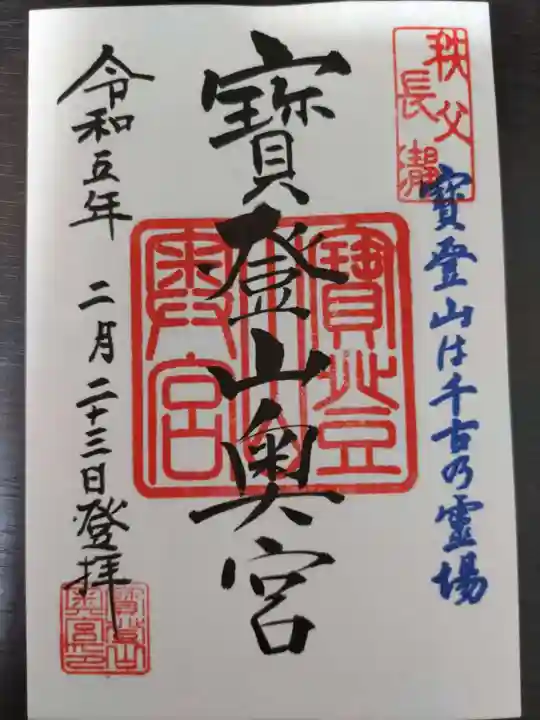 秩父
長瀞
寳登山は千古乃霊場
寳登山奥宮
寳登山
奥宮
令和五年 二月二十三日登拝
寳登山
奥宮印